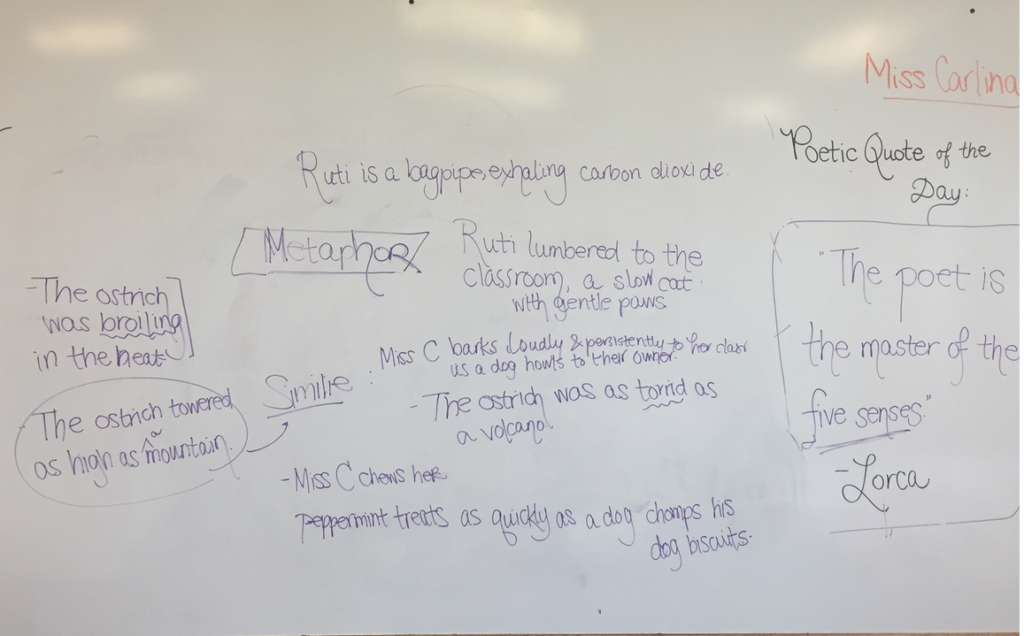 Miss Carlina
Poetic Quote of the
Day:
"The poet is
the master of the
five senses."
-Lorca
Ruti is a bagpipe, exhaling carbon dioxide.
Metaphor
Ruti lumbered to the
classroom, a slow cat
with gentle paws
-The ostrich
was broiling
in the heat
-The ostrich towered
as high as a mountain.
Similie :
Miss C barks loudly & persistently to her class
as a dog howls to their owner.
-The ostrich was as torrid as
a volcano.
-Miss C chews her
peppermint treats as quickly as a dog chomps his
dog biscuits.